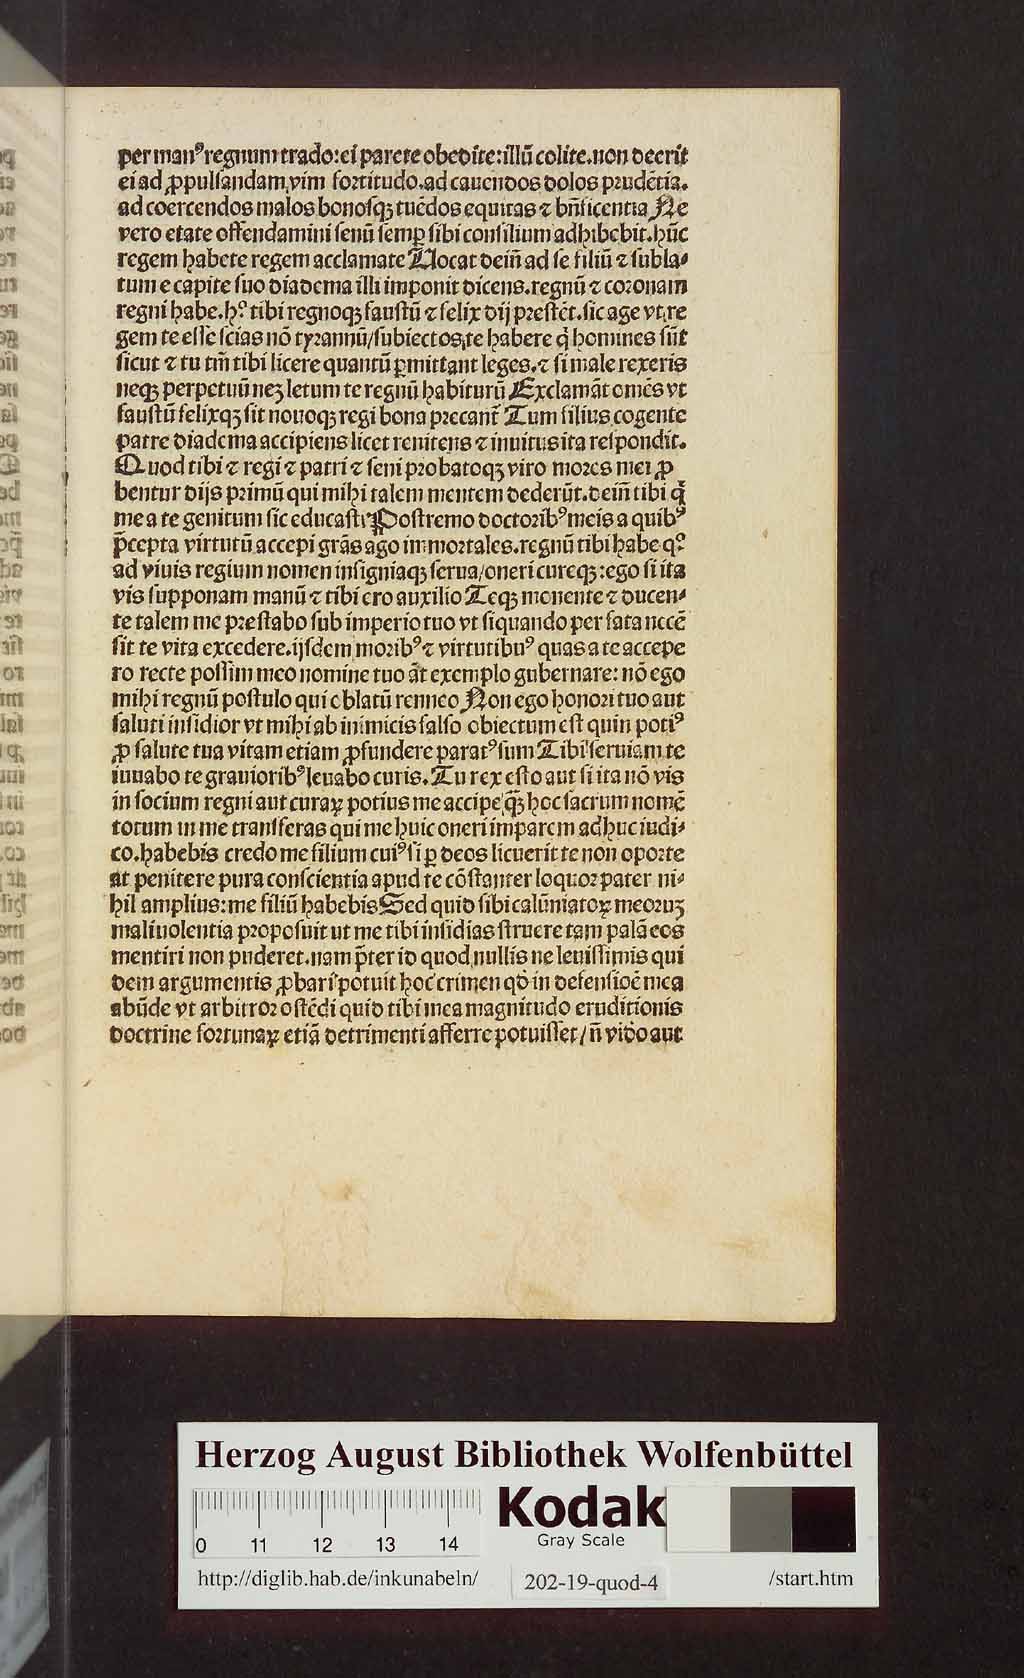 per manꝰ regnum trado: ei parete obedite: illū colite. non deerit
ei ad ꝓpulsandam vim fortitudo. ad cauendos dolos prudētia.
ad coercendos malos bonosqꝫ tuēdos equitas ⁊ bn̄ficentia Ne
vero etate offendamini senū semꝑ sibi consilium adhibebit. hūc
regem habete regem acclamate Uocat dein̄ ad se filiū ⁊ subla⸗
tum e capite suo diadema illi imponit dicens. regnū ⁊ coronam
regni habe. hͦ tibi regnoqꝫ faustū ⁊ felix dij prestēt. sic age vt re
gem te esse scias nō tyrannū/ subiectos te habere q̇ homines sūt
sicut ⁊ tu tm̄ tibi licere quantū ꝑmittant leges. ⁊ si male rexeris
neqꝫ perpetuū neꝫ letum te regnū habiturū Exclamāt omēs vt
faustū felixqꝫ sit nouoqꝫ regi bona precant᷑ Tum filius cogente
patre diadema accipiens licet renitens ⁊ inuitus ita respondit.
Quod tibi ⁊ regi ⁊ patri ⁊ seni probatoqꝫ viro mores mei ꝓ
bentur dijs primū qui mihi talem mentem dederūt. dein̄ tibi q̇
me a te genitum sic educasti Postremo doctoribꝰ meis a quibꝰ
p̄cepta virtutū accepi grās ago immortales. regnū tibi habe qͦ
ad viuis regium nomen insigniaqꝫ serua/ oneri cureqꝫ: ego si ita
vis supponam manū ⁊ tibi ero auxilio Teqꝫ monente ⁊ ducen⸗
te talem me prestabo sub imperio tuo vt siquando per fata necē
sit te vita excedere. ijsdem moribꝰ ⁊ virtutibuꝰ quas a te accepe
ro recte possim meo nomine tuo āt exemplo gubernare: nō ego
mihi regnū postulo qui oblatū renneo Non ego honori tuo aut
saluti insidior vt mihi ab inimicis falso obiectum est quin potiꝰ
ꝓ salute tua vitam etiam ꝓfundere paratꝰ sum Tibi seruiam te
iuuabo te grauioribꝰ leuabo curis. Tu rex esto aut si ita nō vis
in socium regni aut curaꝝ potius me accipe qᷓꝫ hoc sacrum nomē
totum in me transferas qui me huic oneri imparem adhuc iudi⸗
co. habebis credo me filium cuiꝰ si ꝑ deos licuerit te non oporte
at penitere pura conscientia apud te cōstanter loquor pater ni⸗
hil amplius: me filiū habebis Sed quid sibi calūniatoꝝ meoruꝫ
maliuolentia proposuit ut me tibi insidias struere tam palā eos
mentiri non puderet. nam p̄ter id quod nullis ne leuissimis qui
dem argumentis ꝓbari potuit hoc crimen qd̄ in defensiōe mea
abūde vt arbitror ostēdi quid tibi mea magnitudo eruditionis
doctrine fortunaꝝ etiā detrimenti afferre potuisset/ n̄ video aut
Herzog August Bibliothek Wolfenbüttel
Kodak
Gray Scale
0 11 12 13 14
http://diglib.hab.de/inkunabeln/ 202-19-quod-4 /start.htm